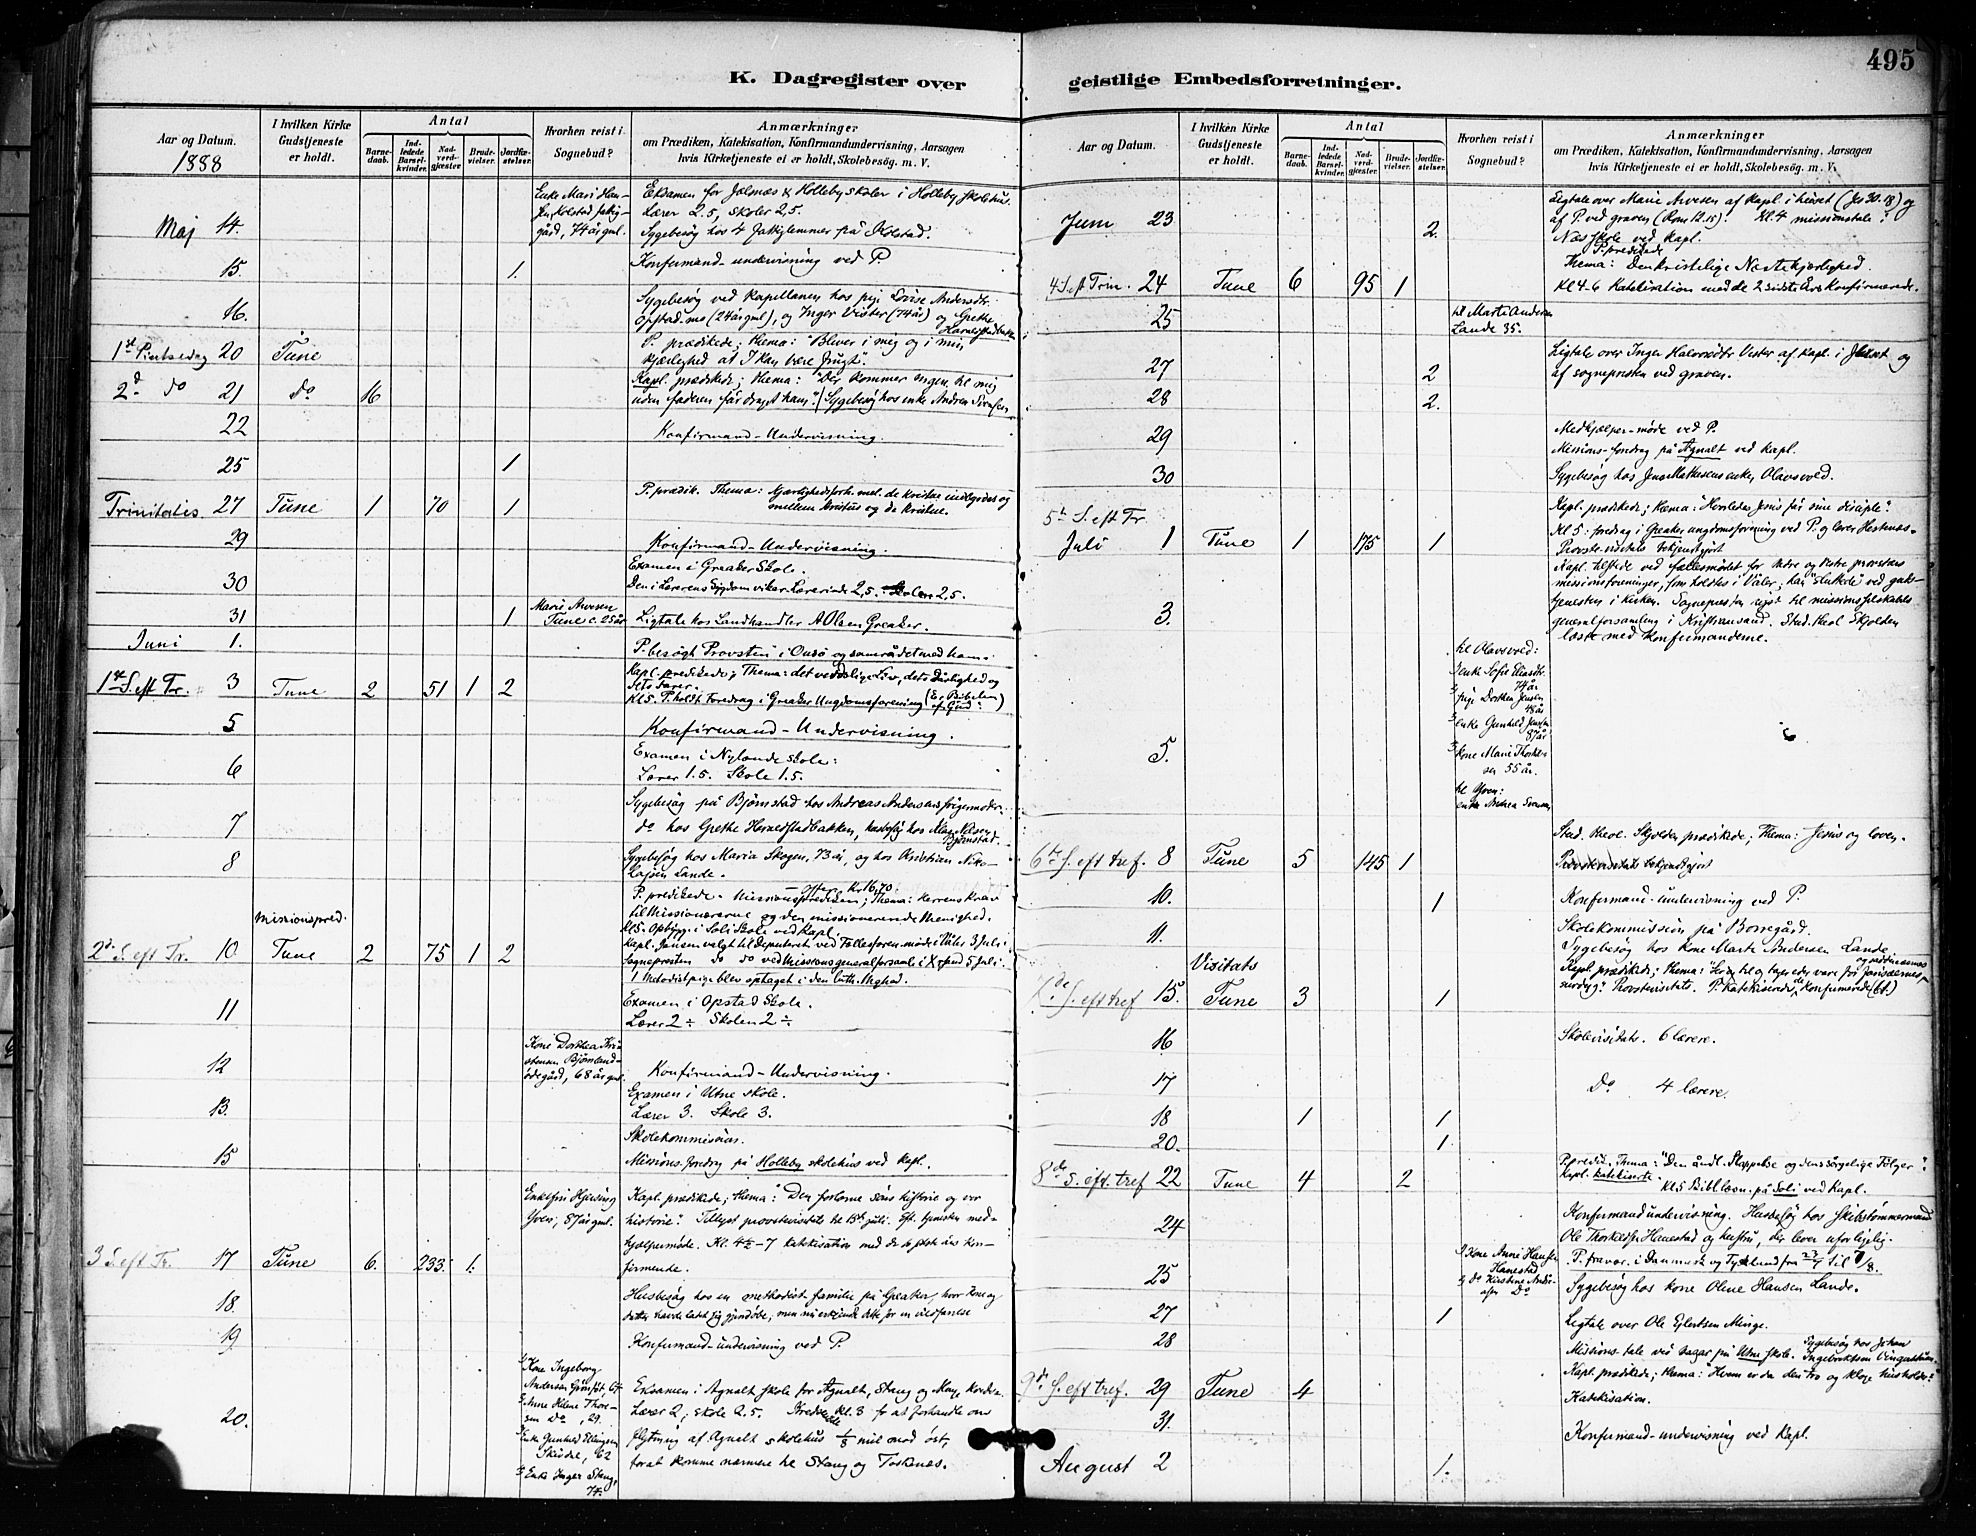 495
K. Dagregister over
geistlige Embedsforretninger.
Aar og Datum.
1888
I hvilken Kirke
Gudstjeneste
er holdt.
Antal
Barne-
daab.
Ind-
ledede
Barsel-
kvinder.
Nad-
verd-
gjester
Brude-
vielser.
Jordfæ-
stelser.
Hvorhen reist i
Sognebud?
Anmærkninger
om Prædiken, Katekisation, Konfirmandundervisning, Aarsagen
hvis Kirketjeneste ei er holdt, Skolebesög. m. V.
Maj 14.
Enke Mari Han-
sen, Kolstad fattig-
gård, 74 år gml.
Eksamen for Jelsnæs & Holleby skoler i Holleby skolehus.
Lærer 2.5, skoler 2,5.
Sygebesøg hos 4 fattiglemmer på Kolstad.
15. 1.
Konfirmand-undervisning ved P.
16.
Sygebesøg ved kapellanen hos pige Lovise Andersdtr.
Opstad mo (24 år gml), og Inger Vister (74 år) og Grethe
1st Pintsedag 20 Tune
P. prædikede; thema: "Bliver i meg og i min
kjærlighed at I kan bære frugt".
2d do 21 do 16
Kapl. prædikede; thema: "Der kommer ingen til mig
uden faderen får draget ham". Sygebesøg hos enke Andrea
22
Konfirmand-Undervisning.
25 1
Trinitatis. 27 Tune 1 70 1
P. prædik. Thema: Kjærlighedsforh. mel. de kristne indbyrdes og
mellem Kristus og de kristne.
29
Konfirmand-Undervisning.
30
Examen i Greaker Skole.
Den i Lærerens Sygdom vikar. Lærerinde 2,5. Skolen 2,5.
31 1
Marie Arvesen
Tune c. 25 år
Ligtale hos Landhandler A Olsen Greaker.
Juni 1.
P. besøgte Provsten i Onsø og samrådet med ham.
1st S. eft Tr. 3 Tune 2 51 1 2
Kapl. prædikede; Thema: det
Kl 5. P. holdt Foredrag i Greaker Ungdomsforening (Er Bibelen
af Gud?)
5
Konfirmand-Undervisning.
6
Examen i Nylande Skole:
Lærer 1.5. Skole 1.5.
7
Sygebesøg på Bjørnstad hos Andreas Andersens svigermoder.
do hos Grethe Harnestadbakken, husbesøg hos
Bjørnstad.
8
Sygebesøg hos Maria Skogen, 73 år, og hos Kristian Niko-
lajsen Lande.
missionspred.
2d S. eft Tr. 10 Tune 2 75 1 2
P. predikede. Missionsprediken; Thema: Herrens krav
til Missionærerne og den missionerende Menighed.
Kl 5. Opbygg. i Soli Skole ved Kapl.
Kapl. Jansen valgt til Deputeret ved Fællesforen. møde i Våler 3 Juli
Sognepresten do do ved Missionsgeneralforsaml. i Xsand 5 Juli.
1 Metodistpige blev optaget i den luth. Meghed.
11
Examen i Opstad Skole.
Lærer 2 ÷ Skolen 2 ÷
12
Kone Dorthea Kri-
stensen Bjørnland-
ødegård, 68 år gml.
Konfirmand-Undervisning.
13.
Examen i Utne Skole.
Lærer 3. Skole 3.
15
Skolekommission.
Missions-foredrag på Holleby skolehus ved Kapl.
3 S. eft Tr. 17 Tune 6. 233. 1.
Yven, 57 år gml.
Kapl. prædikede; thema: Den fortabte søns historie og vor
historie. Tillyst provstevisitats til 15de juli. Eft. tjenesten med-
hjælpermøde. Kl. 4½-7 katekisation med de
firmerede.
18.
Husbesøg hos en methodist familie på Greaker, hvor kone og
19
Konfirmand-undervisning ved P.
20.
Kone Ingeborg
Anne Helene Thor-
sen do, 29.
Enke Gunhild Ellingsen
62
Enke Inger Stang,
74.
Eksamen i Agnalt skole for Agnalt, Stang og
Lærer 2; skole 2.5. Kreds Kl. 3 for at forhandle om
flytning af Agnalt skolehus 1/8 mil mod øst,
for at komme nærmere til Stang og
Aar og Datum.
I hvilken Kirke
Gudstjeneste
er holdt.
Antal
Barne-
daab.
Ind-
ledede
Barsel-
kvinder.
Nad-
verd-
gjester
Brude-
vielser.
Jordfæ-
stelser.
Hvorhen reist i
Sognebud?
Anmærkninger
om Prædiken, Katekisation, Konfirmandundervisning, Aarsagen
hvis Kirketjeneste ei er holdt, Skolebesög. m. V.
Juni 23 2.
Ligtale over Marie Arvesen af Kapl. i huset (Jes 30.18) og
af P. ved graven (Rom 12.15). Kl. 4 missionstale
Næs skole ved Kapl.
4 S. eft Trin. 24 Tune 6 95 1
P. prædikede
Thema: Den kristelige Næstekjærlighed.
Kl 4-6 Katekisation med de 2 sidste Års Konfirmerede.
25
til Marte Andersen
Lande 35.
27 2
Ligtale over Inger Halvorsdtr Vister af Kapl. i Huset og
af sognepresten ved graven.
28 2.
29
Medhjælper-møde ved P.
Missions-foredrag på Agnalt ved Kapl.
30
Sygebesøg hos Jens Mathisens enke, Olavsvold.
5te S. eft Tr.
Juli 1 Tune 1 175 1
Kapl. prædikede; thema: Hvorledes Jesus får sine disciple.
Kl 5: foredrag i Greaker ungdomsforening ved P. og lærer Hestenæs.
Provste-visitats bekjendtgjort
3.
Kapl. tilstede ved fællesmødet for nedre og østre provstiers
missionsforeninger, som holdtes i Våler; han "sluttede" ved guds-
tjenesten i kirken. Sognepresten reist til missionsselskabets
generalforsamling i Kristiansand. Stud. theol Skjolden
læste med konfirmanderne.
5.
til Olavsvold:
enke Sofie
74 år
pige Dorthea Jensen
48 år
enke Gunhild
87 år
kone Marie Thorkel-
sen 55 år.
til Yven:
enke Andrea
6te S. eft tref. 8 Tune 5 145 1
Stud. theol. Skjolden prædikede; Thema: Jesus og loven.
Provstevisitats bekjendtgjort
10. 1
Konfirmand-undervisning ved P.
11.
Skolekommission på Borregård.
Sygebesøg hos kone Marte Andersen Lande
Visitats
7de S. eft tref 15. Tune 3 1
Kapl. prædikede; thema: "Ser til og tager eder vare for farisæernes
og sadducæernes
surdejg". Provstevisitats. P. katekiserede de konfirmerede
16
Skolevisitats. 6 lærere.
17
Do 4 lærere.
18 1 1
20. 1.
8de S. eft. tref 22 Tune 4 2
P. predik. Thema: "Den åndl. Sløppelse og dens sørgelige Følger".
Kapl. katekiserte
Kl 5 Bibllæsn. på Soli ved Kapl.
24
Konfirmandundervisning. Husbesøg hos skibstømmermand
Ole Thorkelsen Hanestad og hustru, der lever uforligelig.
P. fravær. i Danmark og Tyskland fra 23/7 til 7/8.
25
Kone Anne Hansen
Hanestad
do Kirstine Andre-
asen Do
Sygebesøg hos kone Oline Hansen Lande.
27 1
Ligtale over Ole Ejlertsen Minge.
28
Missions-tale ved bazar på Utne skole. Sygebesøg hos Johan
9de S. eft tref. 29 Tune 4
Kapl. prædikede; thema: Hvem er da den tro og kloge husholder?
Katekisation.
31.
Konfirmand-undervisning ved Kapl.
August 2 1.